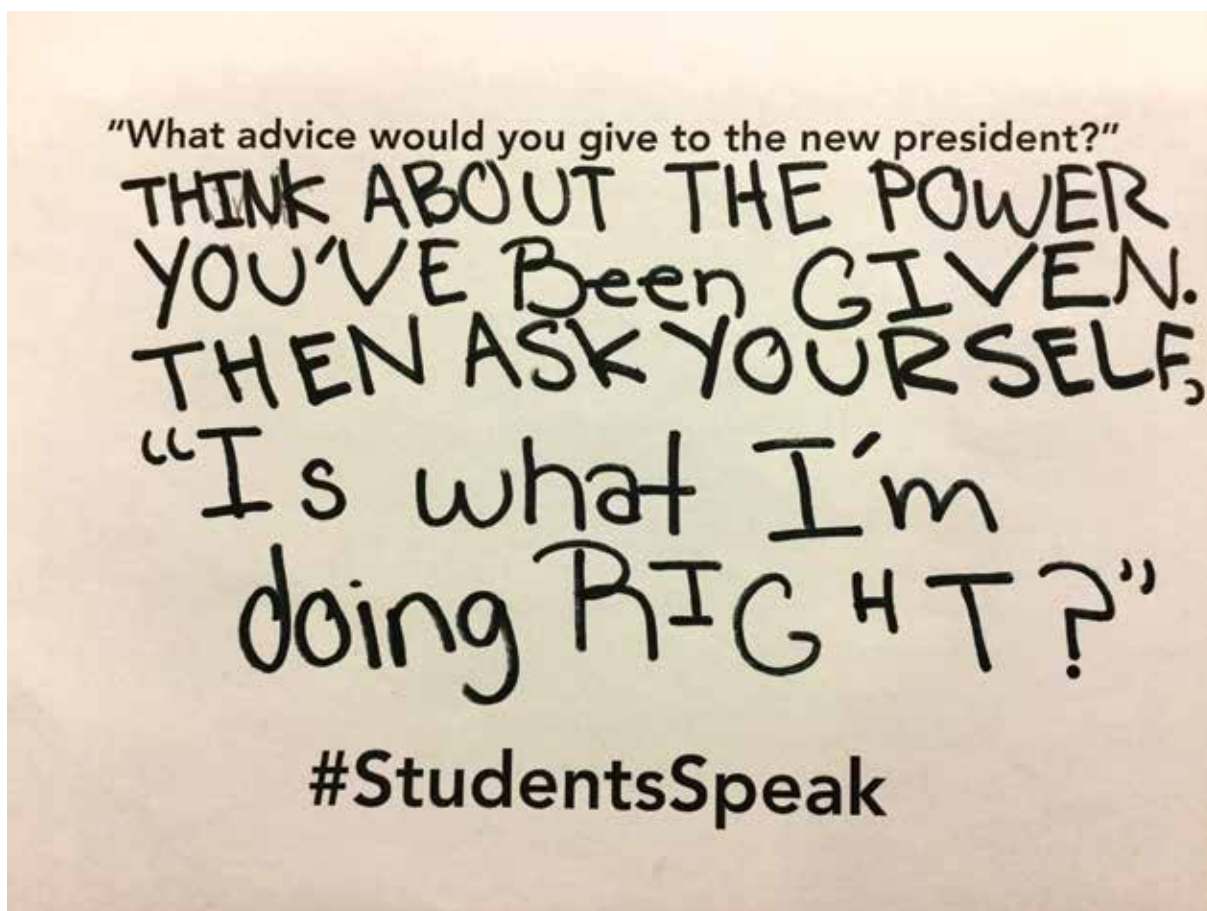 "What advice would you give to the new president?"
THINK ABOUT THE POWER
YOU'VE Been GIVEN.
THEN ASK YOURSELF,
"Is what I'm
doing RIGHT?"
#StudentsSpeak